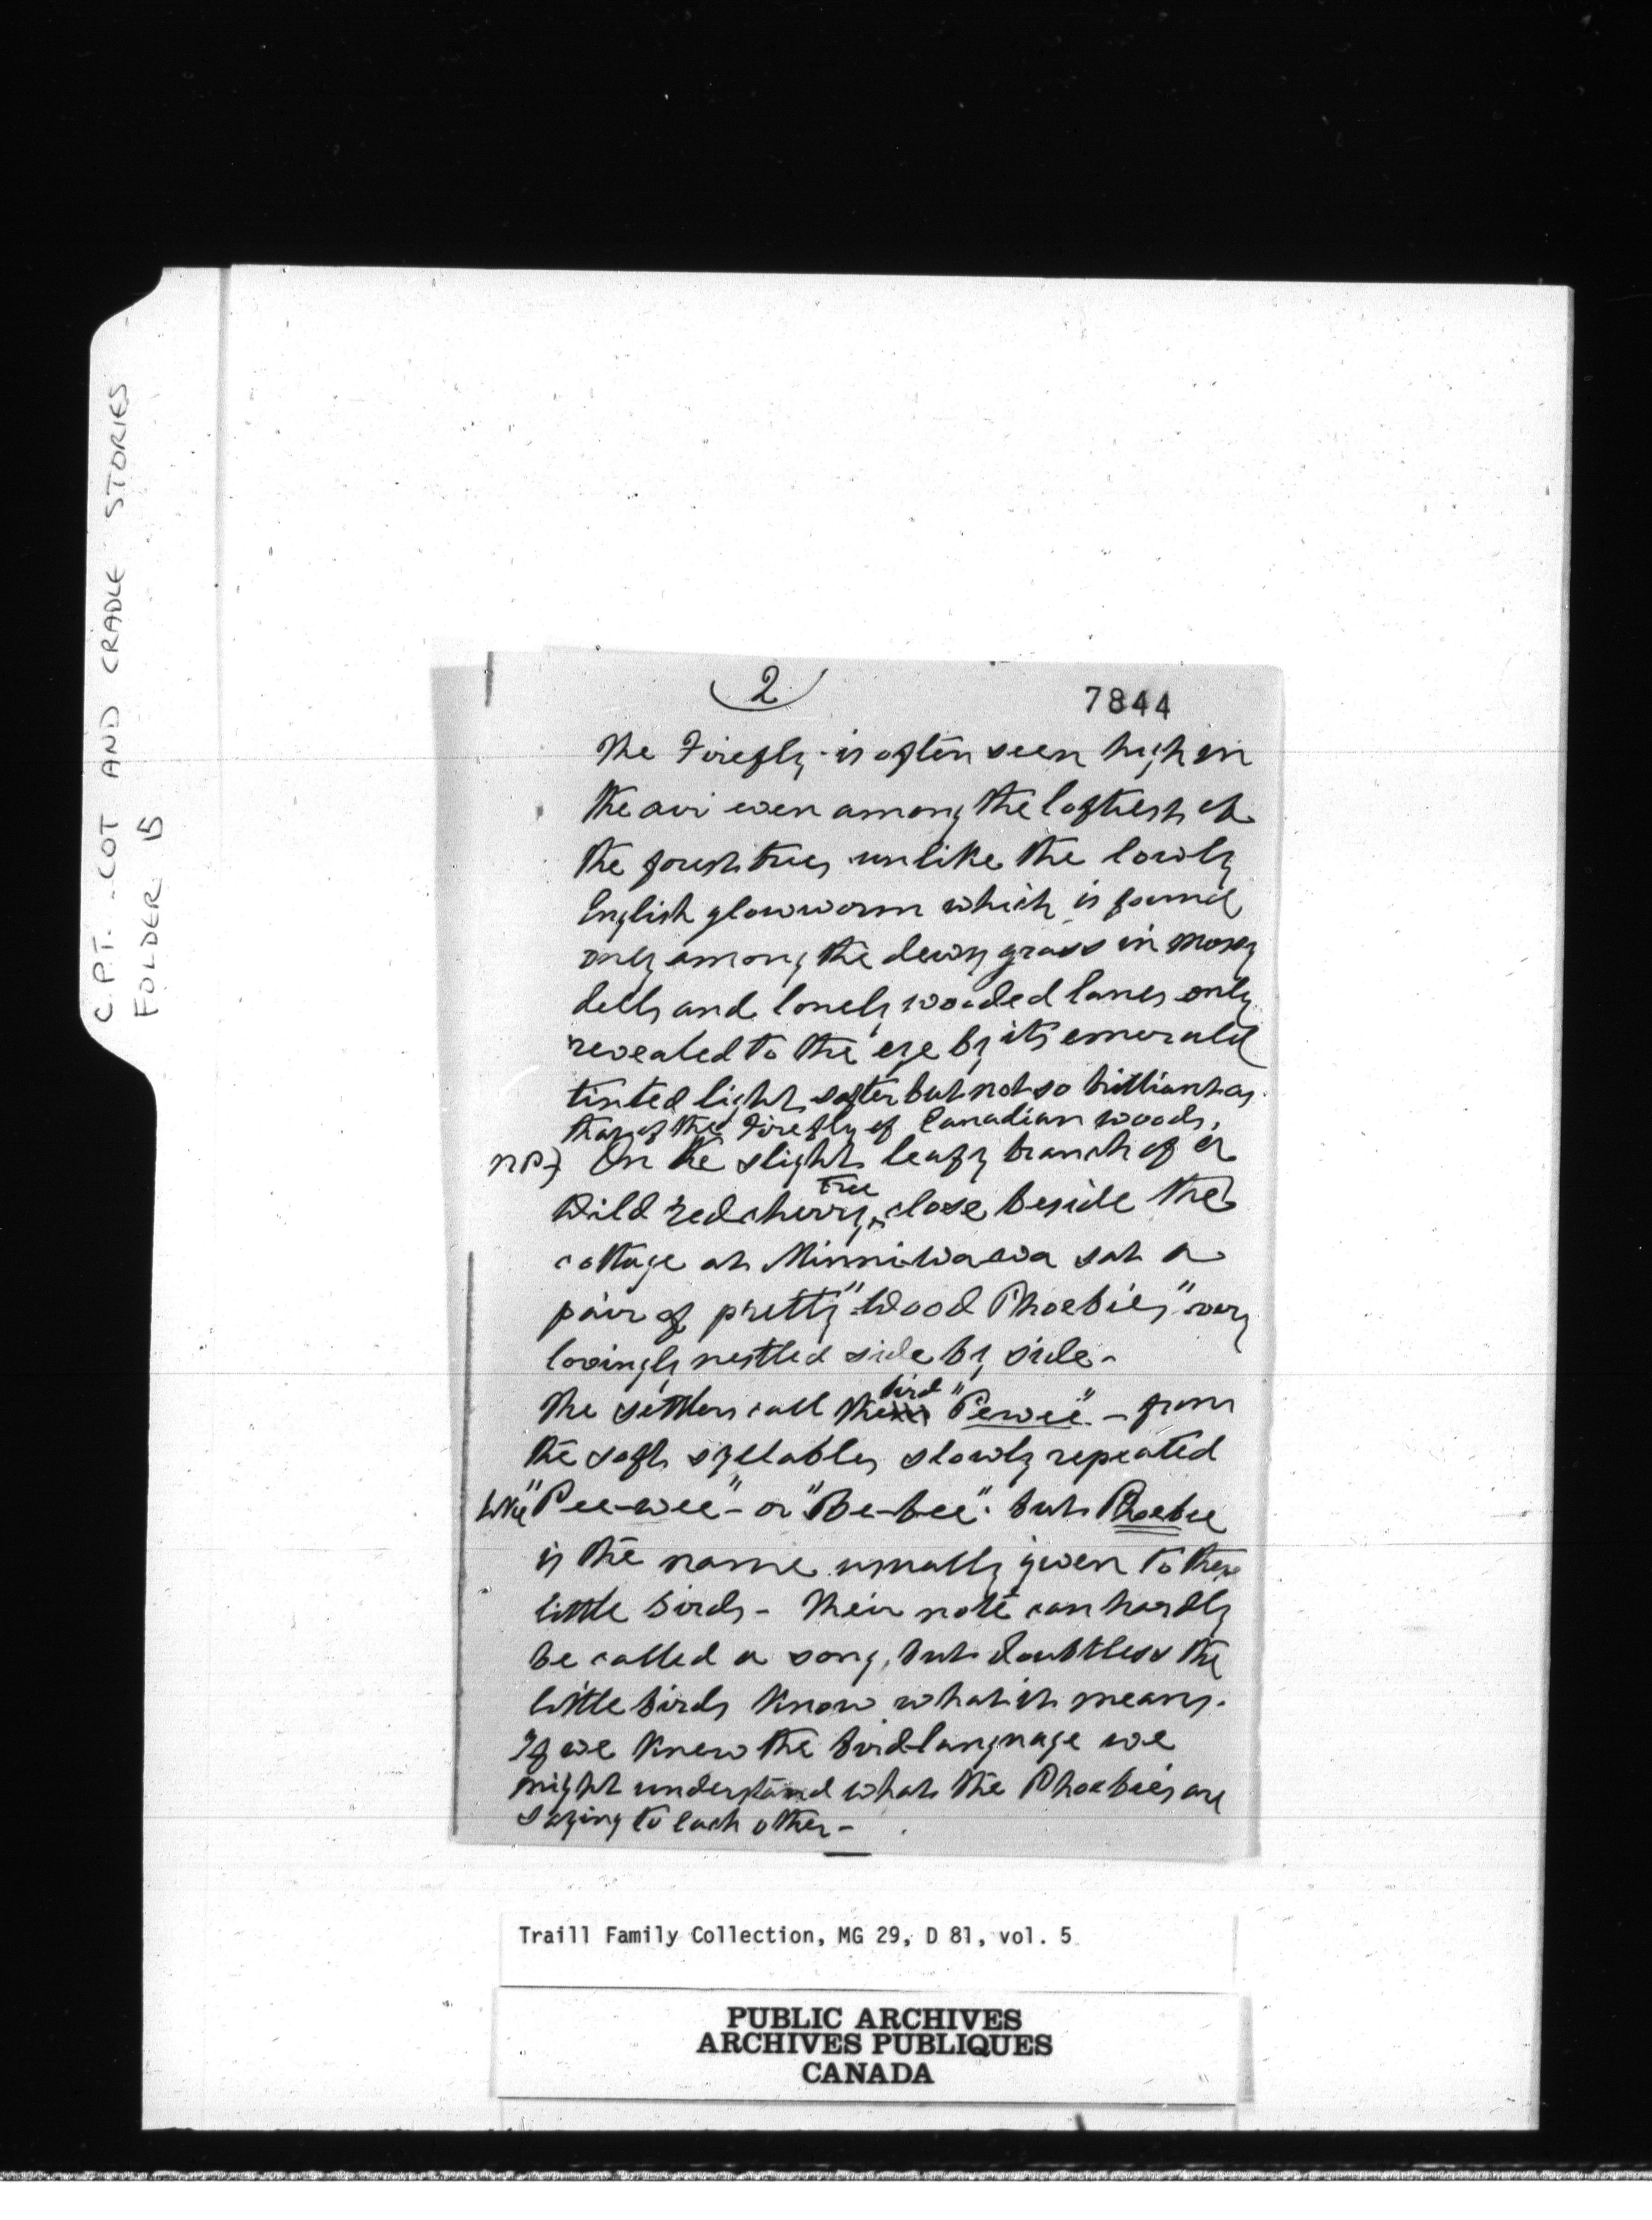 C.P.T. - COT AND CRADLE STORIES
FOLDER 15
2
7844
The Firefly - is often seen high in
the air even among the loftiest of
the forest trees unlike the lowly
English glowworm which is found
only among the dewy grass in mossy
dells and lonely wooded lanes only
revealed to the eye by its emerald
tinted light softer but not so brilliant as
that of the Firefly of Canadian woods.
NP} On the slight leafy branch of a
Wild red cherry tree close beside the
cottage at Minniwawa sat a
pair of pretty "Wood Phoebies" very
lovingly nestled side by side -
The settlers call the bird "Pewee" - from
the soft syllables slowly repeated
like "Pee-wee" - or "Be-bee". but Phoebee
is the name usually given to these
little birds - Their note can hardly
be called a song, but doubtless the
little birds know what it means.
If we knew the bird-language we
might understand what the Phoebies are
saying to each other -
Traill Family Collection, MG 29, D 81, vol. 5
PUBLIC ARCHIVES
ARCHIVES PUBLIQUES
CANADA